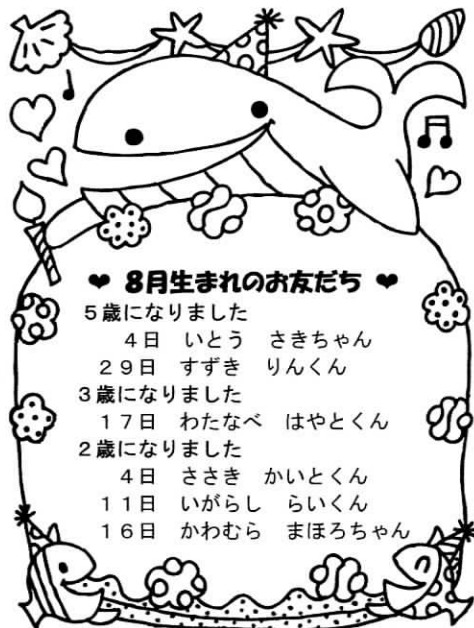 ❤ 8月生まれのお友だち ❤
5歳になりました
4日 いとう さきちゃん
29日 すずき りんくん
3歳になりました
17日 わたなべ はやとくん
2歳になりました
4日 ささき かいとくん
11日 いがらし らいくん
16日 かわむら まほろちゃん